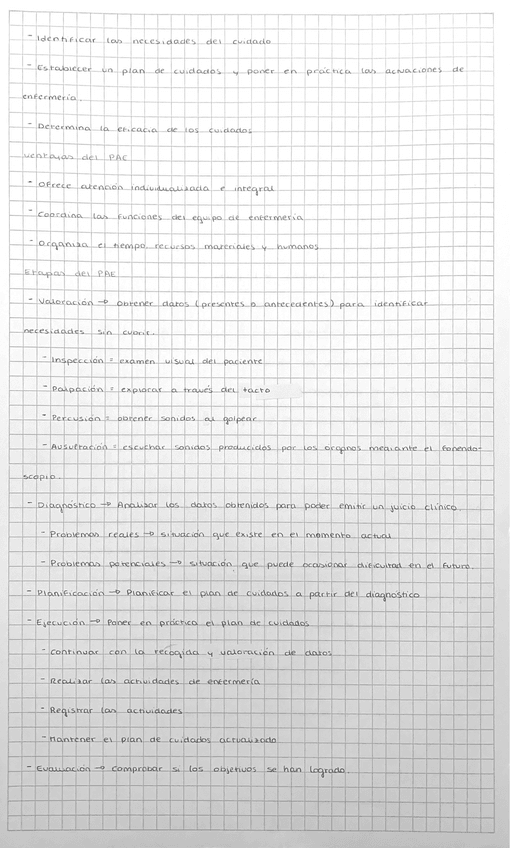 - Identificar las necesidades del cuidado
- Establecer un plan de cuidados y poner en práctica las actuaciones de
enfermería.
- Determina la eficacia de los cuidados
Ventajas del PAE
- Ofrece atención individualizada e integral
- Coordina las funciones del equipo de enfermería
- Organiza el tiempo, recursos materiales y humanos
Etapas del PAE
- Valoración → Obtener datos (presentes o antecedentes) para identificar
necesidades sin cubrir.
- Inspección = examen visual del paciente
- Palpación = explorar a través del tacto
- Percusión = obtener sonidos al golpear
- Ausultración = escuchar sonidos producidos por los órganos mediante el fonendo-
scopio.
- Diagnóstico → Analizar los datos obtenidos para poder emitir un juicio clínico.
- Problemas reales → situación que existe en el momento actual
- Problemas potenciales → situación que puede ocasionar dificultad en el futuro.
- Planificación → Planificar el plan de cuidados a partir del diagnóstico
- Ejecución → Poner en práctica el plan de cuidados
- Continuar con la recogida y valoración de datos
- Realizar las actividades de enfermería
- Registrar las actividades
- Mantener el plan de cuidados actualizado
- Evaluación → Comprobar si los objetivos se han logrado.